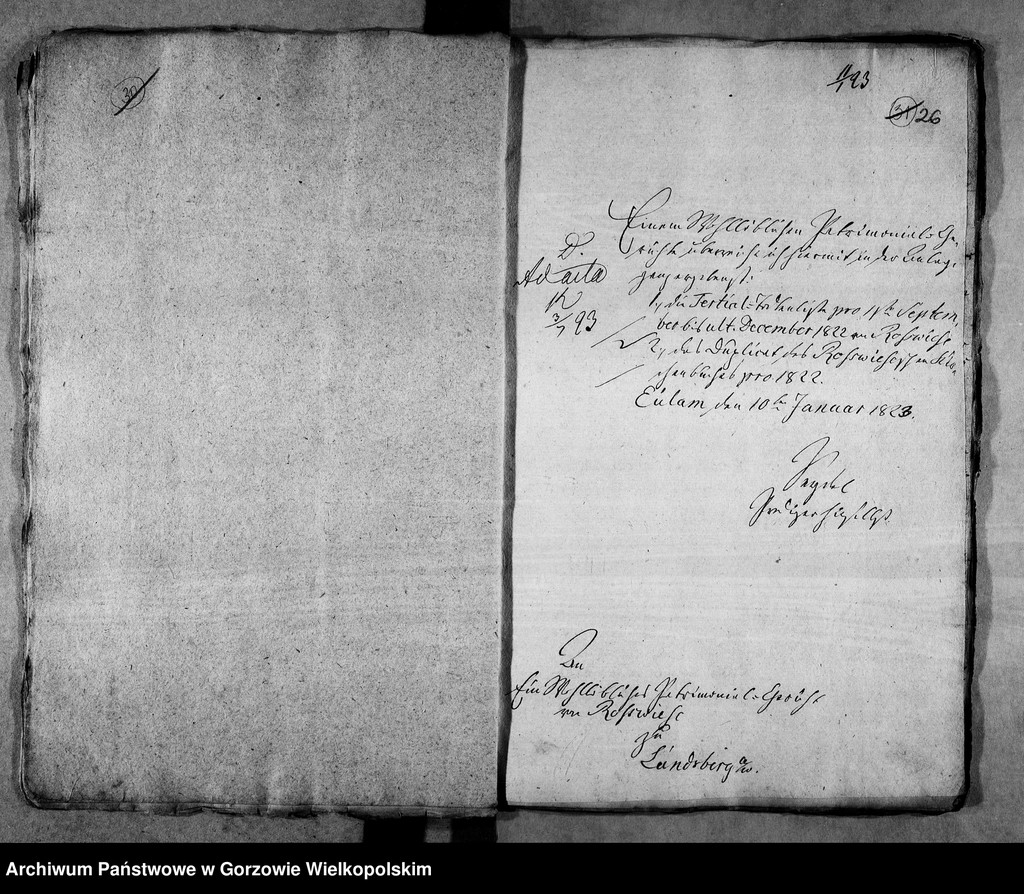 30
11/1 23
31 26
Einem Wohllöblichen Patrimonial-Ge-
richte überreiche ich hiermit in der Anlage
ganz ergebenst:
D.
Ad acta
1, die Tertial-Todtenliste pro 1ten Septem-
ber bis ult. December 1822 von Roßwiese
2, das Duplicat des Roßwieseschen Kir-
chenbuches pro 1822.
Eulam, den 10ten Januar 1823.
Prediger hieselbst
An
Ein Wohllöbliches Patrimonial-Gericht
von Roßwiese
zu
Landsberg a/W.
Archiwum Państwowe w Gorzowie Wielkopolskim